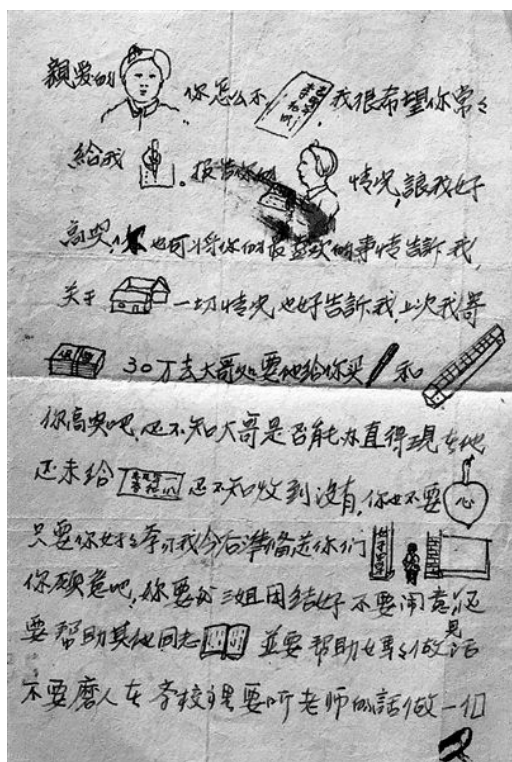 親爱的 你怎么不 我很希望你常々
給我 。报告你的 情况,讓我好
高兴,你也可将你的最喜欢的事情告訴我,
关于 一切情况也好告訴我,上次我寄
30万去大哥处要他給你买 和
你高兴吧,还不知大哥是否能办 現在他
还未给 还不知收到没有,你也不要 心
只要你好好学习我今后準备送你们
你願意吧,妳要和三姐团结好不要闹意見还
要帮助其他同志 並要帮助妈々做事
不要磨人在学校裡要听老师的話做一個